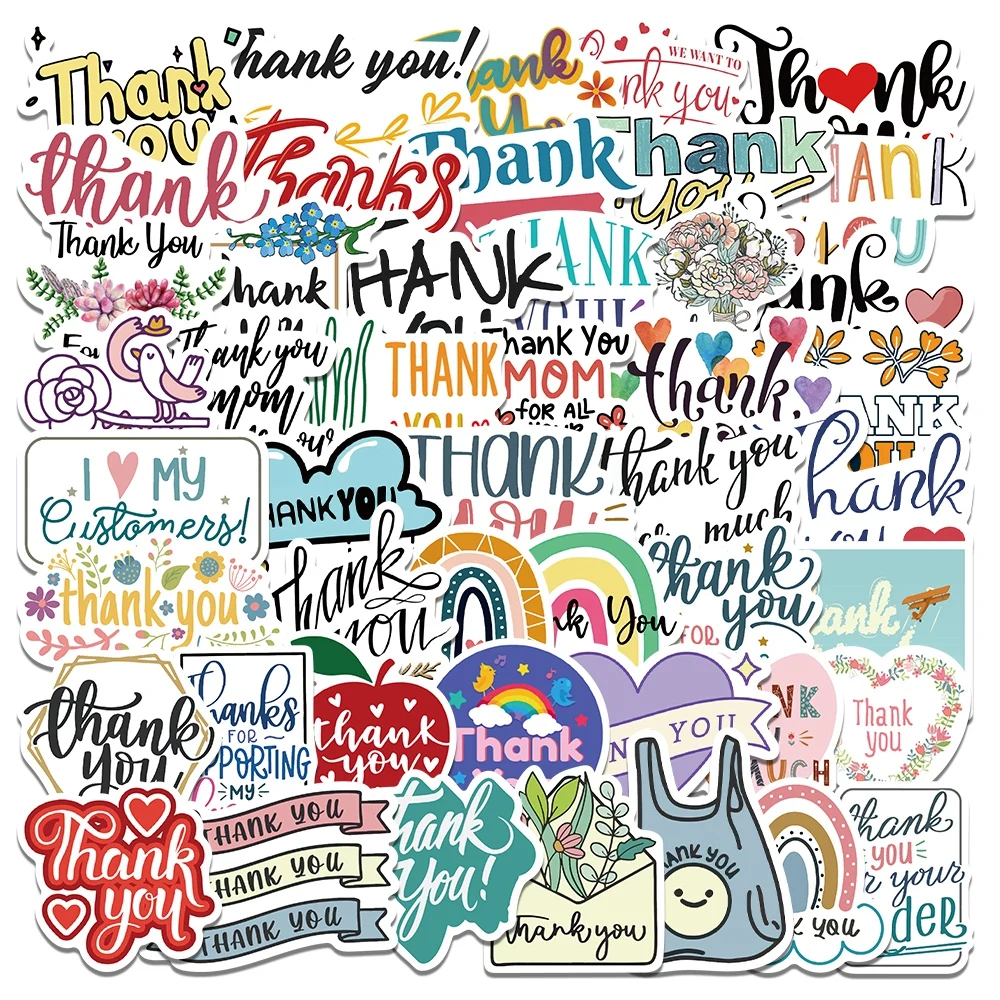 Thank
you
hank you!
ank
WE WANT TO
nk you
Thank
thank
Thanks
Thank
Thank
you
HANK
Thank You
hank
HANK
YOU
HANK
YOUR
ank
Thank you
mom
THANK
YOU
Thank You
MOM
FOR ALL
thank
ANK
OU
I MY
Customers!
HANK YOU
THANK
thank you
much
hank
you
thank you
hank
you
k You
hank
you
FOR
ank
thank
you
hanks
FOR
PORTING
MY
thank
you
Thank
YOU
NK
UCH
Thank
you
Thank
you
THANK YOU
THANK YOU
THANK YOU
hank
You!
thank you
HANK YOU
YOU
hank
you
r your
der